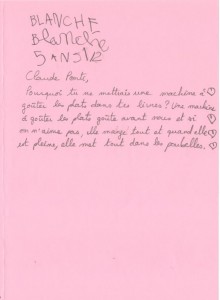 BLANCHE
Blanche
5 ANS
Claude Ponti,
Pourquoi tu ne mettrais une machine à
goûter les plats dans tes livres ? Une machine
à goûter les plats goûte avant nous et si
on n'aime pas, elle mange tout et quand elle
est pleine, elle met tout dans les poubelles.